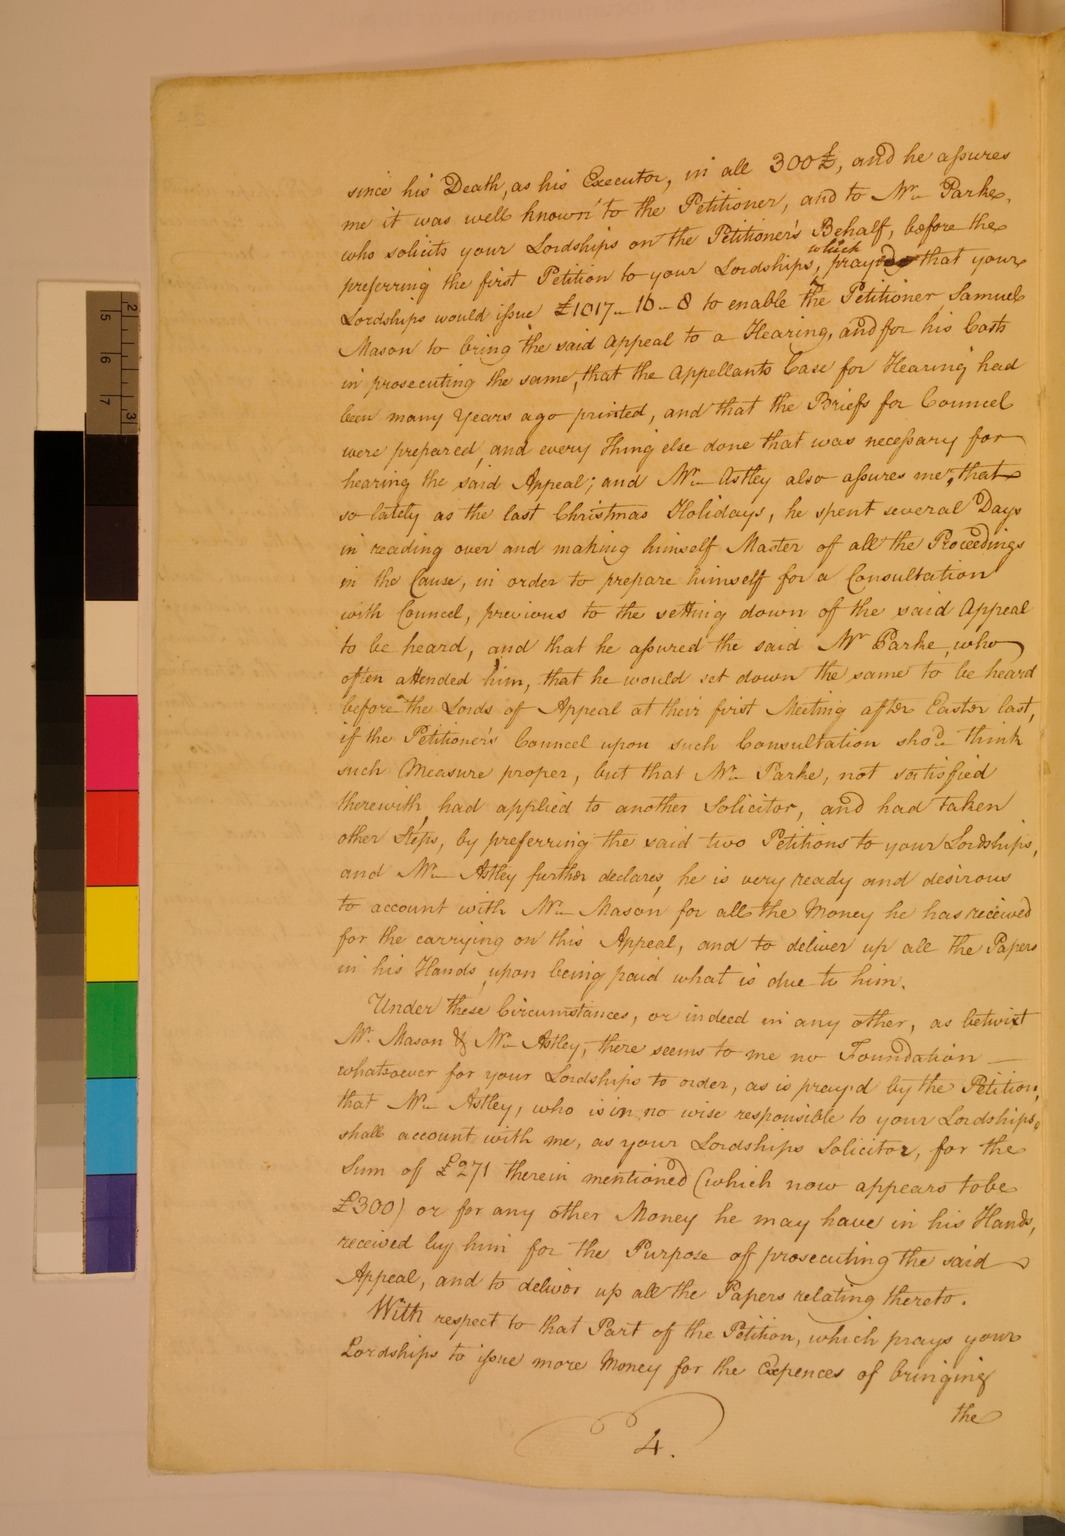 since his Death, as his Executor, in all 300£, and he aſsures
me it was well known to the Petitioner, and to Mr. Parke,
who solicits your Lordships on the Petitioner's Behalf, before the
which
preferring the first Petition to your Lordships, prayed that your
Lordships would iſsue £1017-16-8 to enable the Petitioner Samuel
Mason to bring the said Appeal to a Hearing, and for his Costs
in prosecuting the same, that the Appellants Case for Hearing had
been many Years ago printed, and that the Briefs for Councel
were prepared, and every Thing else done that was neceſsary for
hearing the said Appeal; and Mr. Astley also aſsures me, that
so lately as the last Christmas Holidays, he spent several Days
in reading over and making himself Master of all the Proceedings
in the Cause, in order to prepare himself for a Consultation
with Councel, previous to the setting down of the said Appeal
to be heard, and that he aſsured the said Mr. Parke, who
often attended him, that he would set down the same to be heard
before the Lords of Appeal at their first Meeting after Easter last,
if the Petitioner's Councel upon such Consultation sho.d think
such Measure proper, but that Mr. Parke, not satisfied
therewith, had applied to another Solicitor, and had taken
other Steps, by preferring the said two Petitions to your Lordships,
and Mr. Astley further declares, he is very ready and desirous
to account with Mr. Mason for all the Money he has received
for the carrying on this Appeal, and to deliver up all the Papers
in his Hands, upon being paid what is due to him.
Under these Circumstances, or indeed in any other, as betwixt
Mr. Mason & Mr. Astley, there seems to me no Foundation —
whatsoever for your Lordships to order, as is pray'd by the Petition,
that Mr. Astley, who is in no wise responsible to your Lordships,
shall account with me, as your Lordships Solicitor, for the
Sum of £271 therein mentioned (which now appears to be
£300) or for any other Money he may have in his Hands,
received by him for the Purpose of prosecuting the said
Appeal, and to deliver up all the Papers relating thereto.
With respect to that Part of the Petition, which prays your
Lordships to iſsue more Money for the Expences of bringing
the
4.